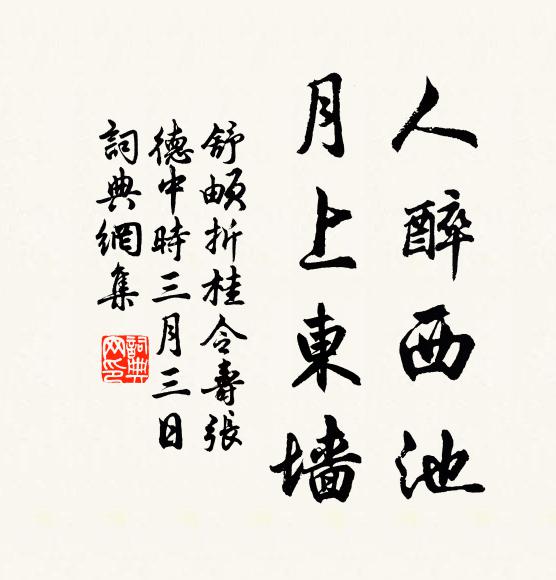 人醉西池
月上東墙
舒頔折桂令壽張
德中時三月三日
詞典網集
詞典
网印